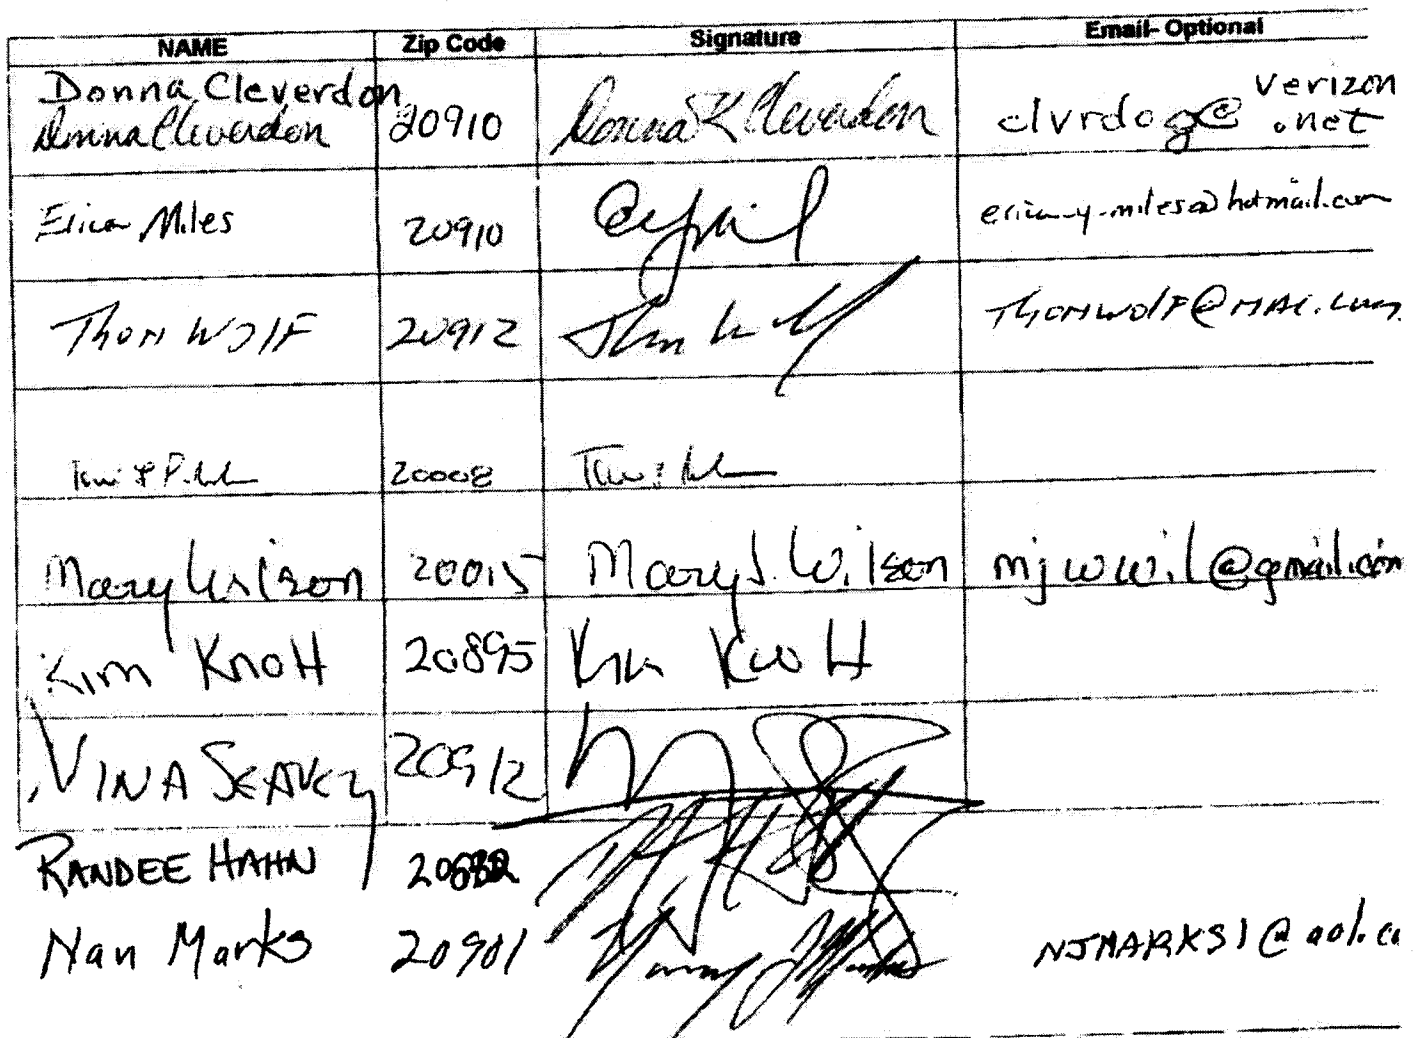 NAME Zip Code Signature Email- Optional
Donna Cleverdon verizon
Donna Cleverdon 20910 Donna K Cleverdon clvrdog@ .net
Erica Miles 20910
Thom Wolf 20912 Thom Wolf Thomwolf@mac.com
20008
Mary Wilson 20015 Mary J. Wilson mjwwil@gmail.com
Kim Knott 20895 Kim Knott
VINA SEAVEY 20912
RANDEE HAHN
Nan Marks 20901 NJMARKS1@aol.co